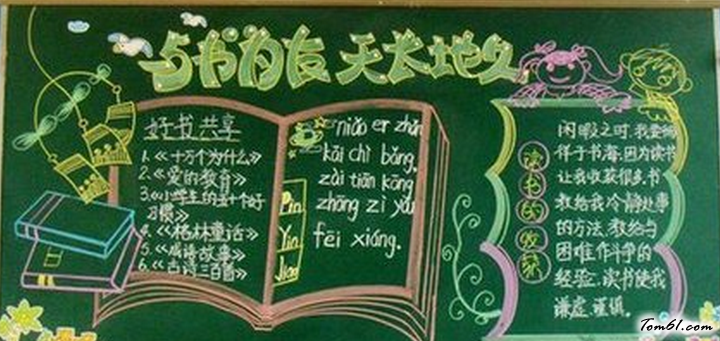 与书为友 天长地久
好书共享
1.《十万个为什么》
2.《爱的教育》
3.《小学生的五十个好
习惯》
4.《格林童话》
5.《成语故事》
6.《古诗三百首》
niǎo er zhān
kāi chì bǎng.
zài tiān kōng
zhōng zì yóu
fēi xiáng.
Pin
Yin
Jiao
读书的收获
闲暇之时,我要徜
徉于书海,因为读书
让我收获很多,书
教给我冷静处事
的方法,教给与
困难作斗争的
经验,读书使我
谦虚,谨慎.
Tom61.com